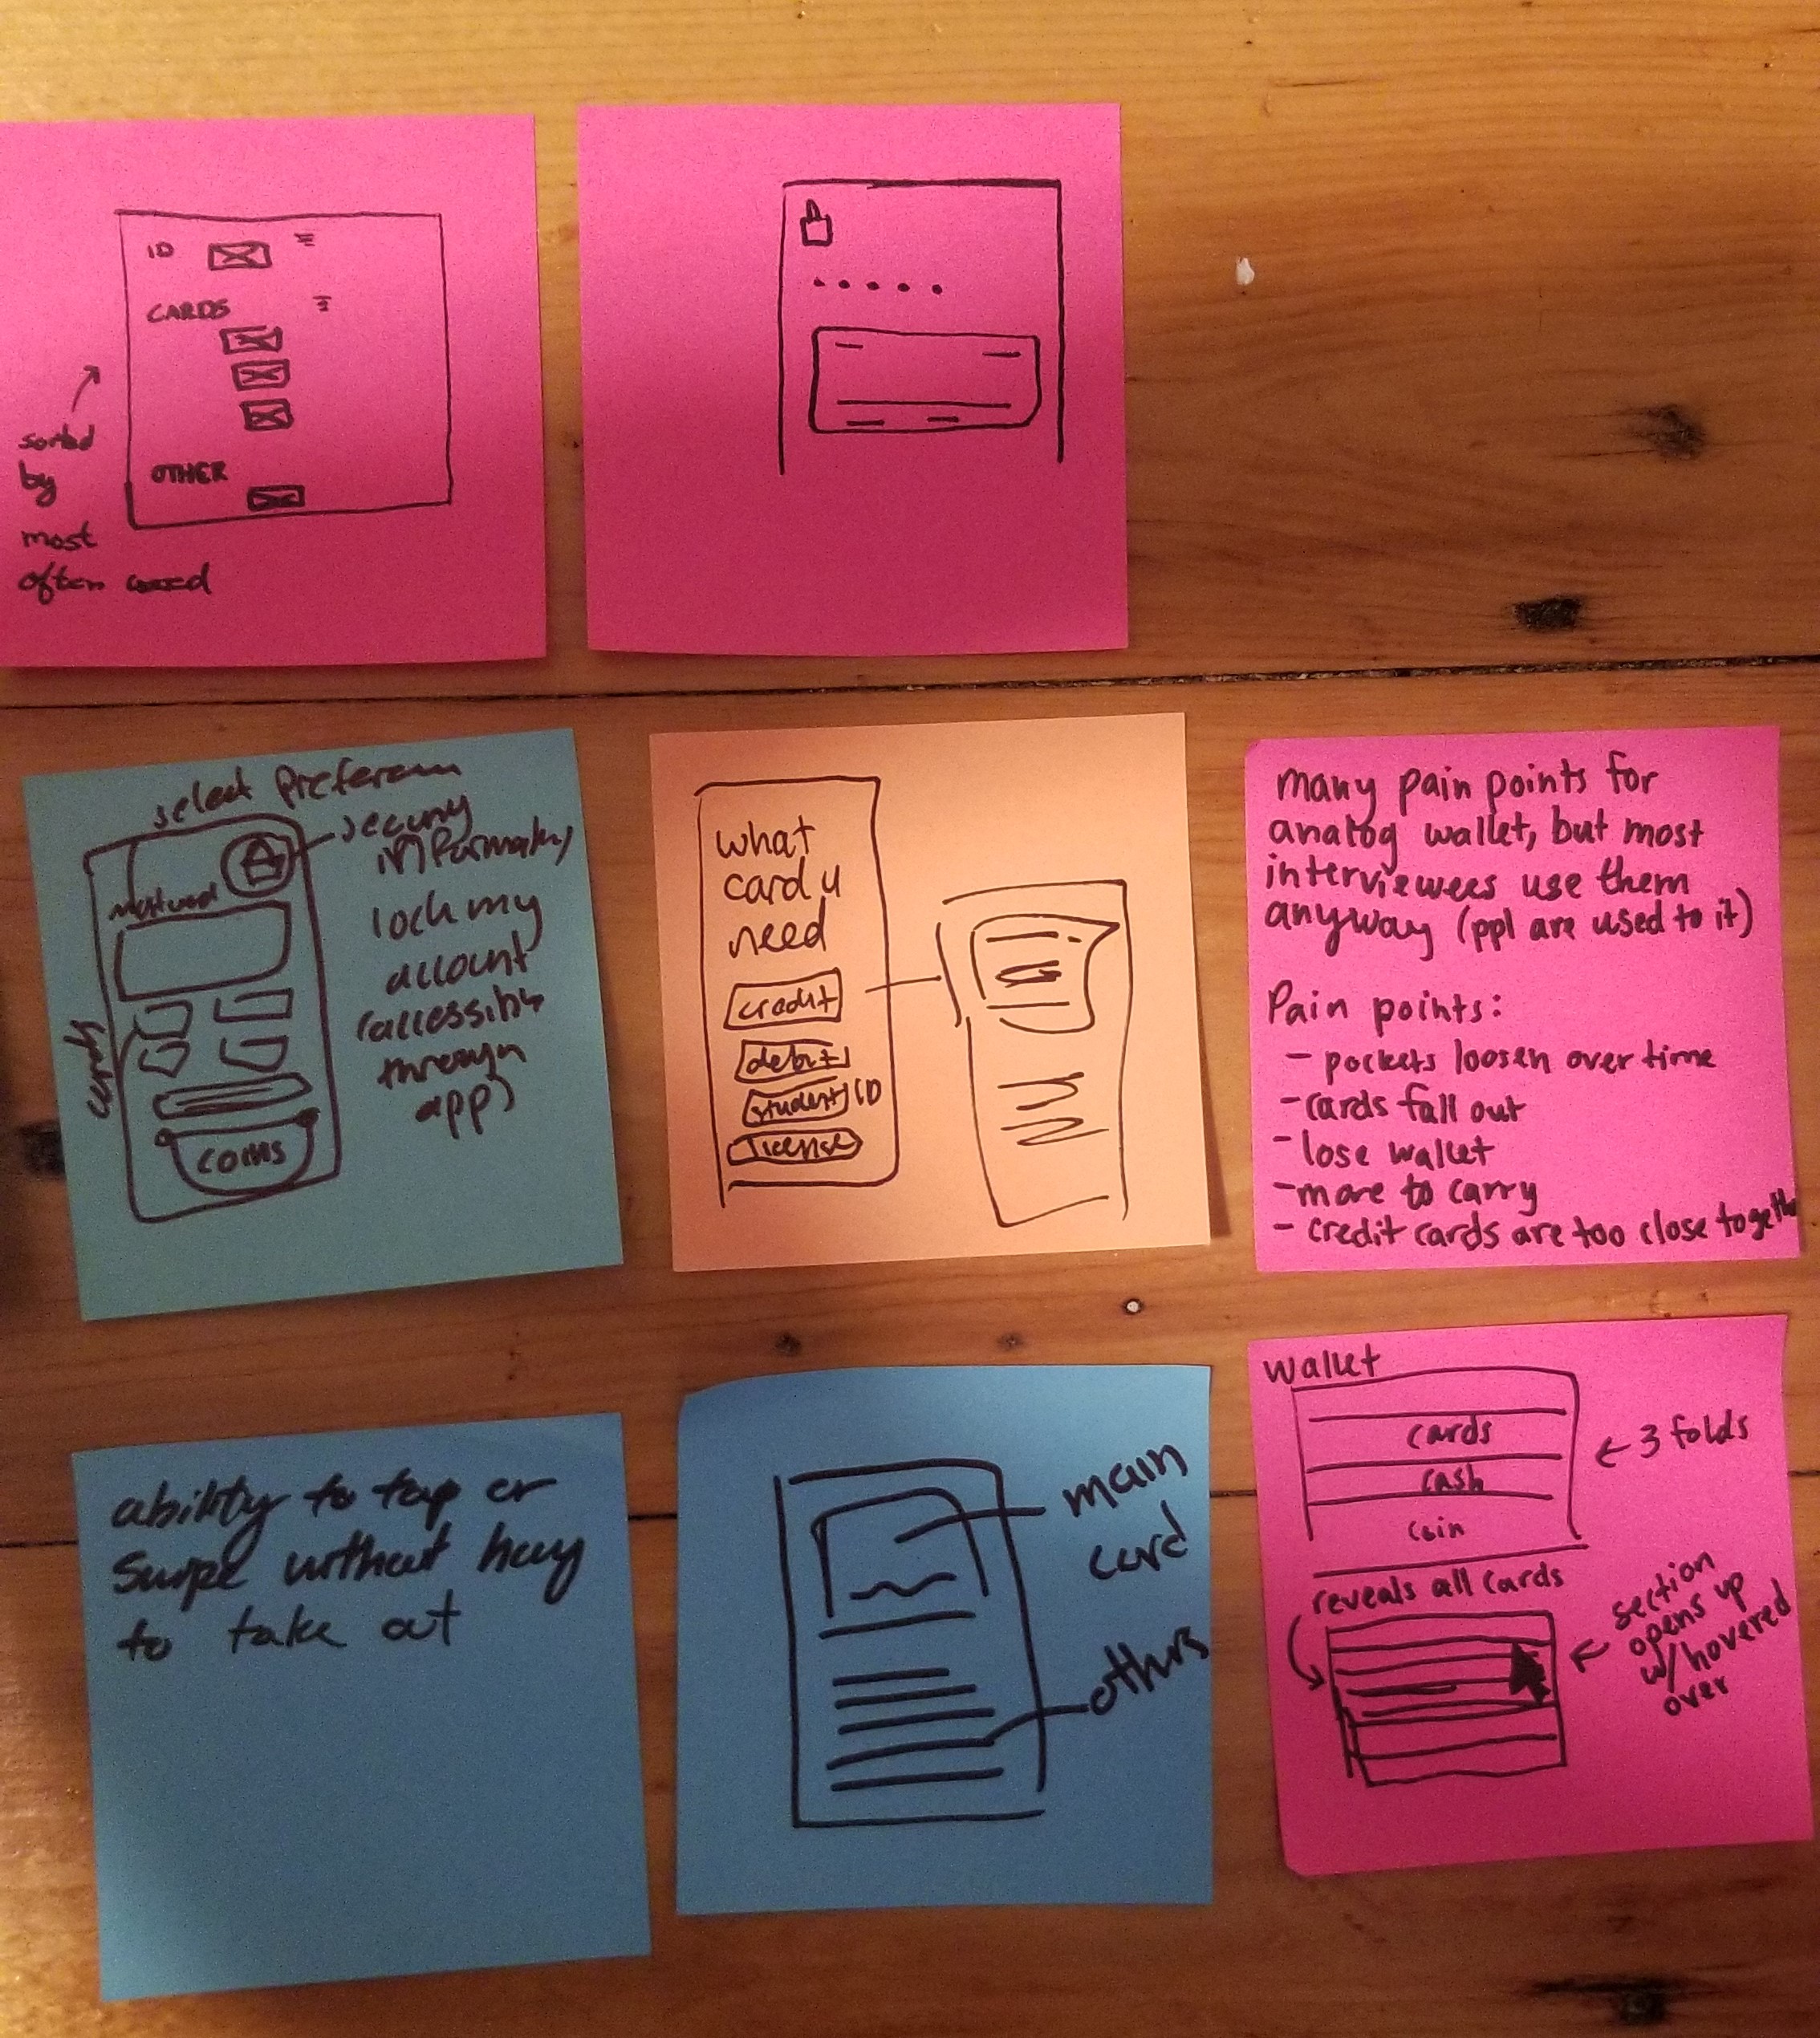 ID
CARDS
OTHER
sorted
by
most
often used
select Preferern
security
informatin
most used
lock my
account
(accessible
through
app)
cards
coins
what
card u
need
credit
debit
student ID
license
many pain points for
analog wallet, but most
interviewees use them
anyway (ppl are used to it)
Pain points:
- pockets loosen over time
- cards fall out
- lose wallet
- more to carry
- credit cards are too close together
ability to tap or
swipe without having
to take out
main
card
others
wallet
cards
cash
coin
← 3 folds
reveals all cards
section
opens up
w/ hovered
over